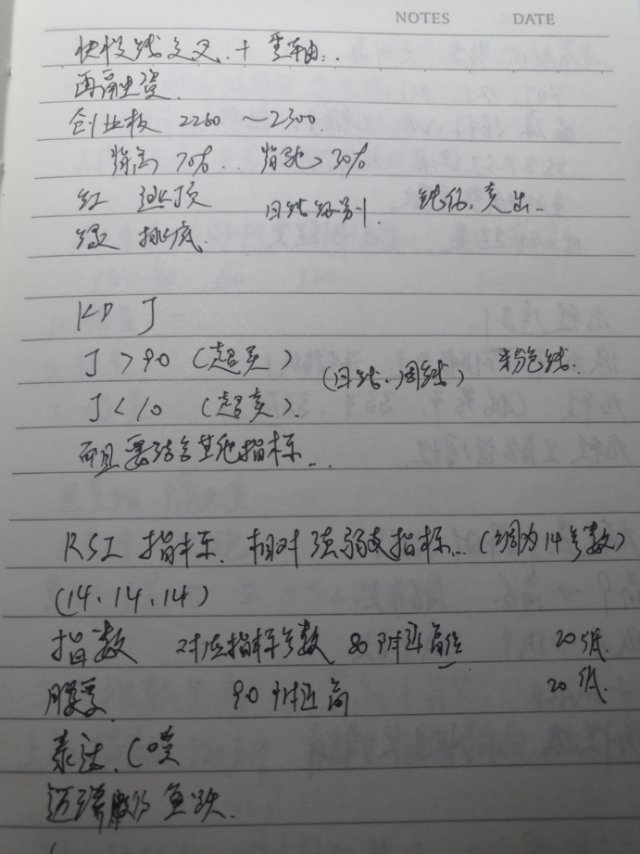 NOTES DATE
快慢线交叉.＋零轴..
再融资.
创业板 2260～2300.
背离 70%.. 背驰 30%
红 逃顶 日线级别. 钝化.卖出..
绿 抄底.
KDJ
J＞90（超买）（日线、周线）紫色线.
J＜10（超卖）.
而且要结合其他指标...
RSI 指标.相对强弱指标..（调为14参数）
(14、14、14)
指数 对应指标参数 80附近高位 20低.
股票 90附近高 20低.
泰达.
迈瑞